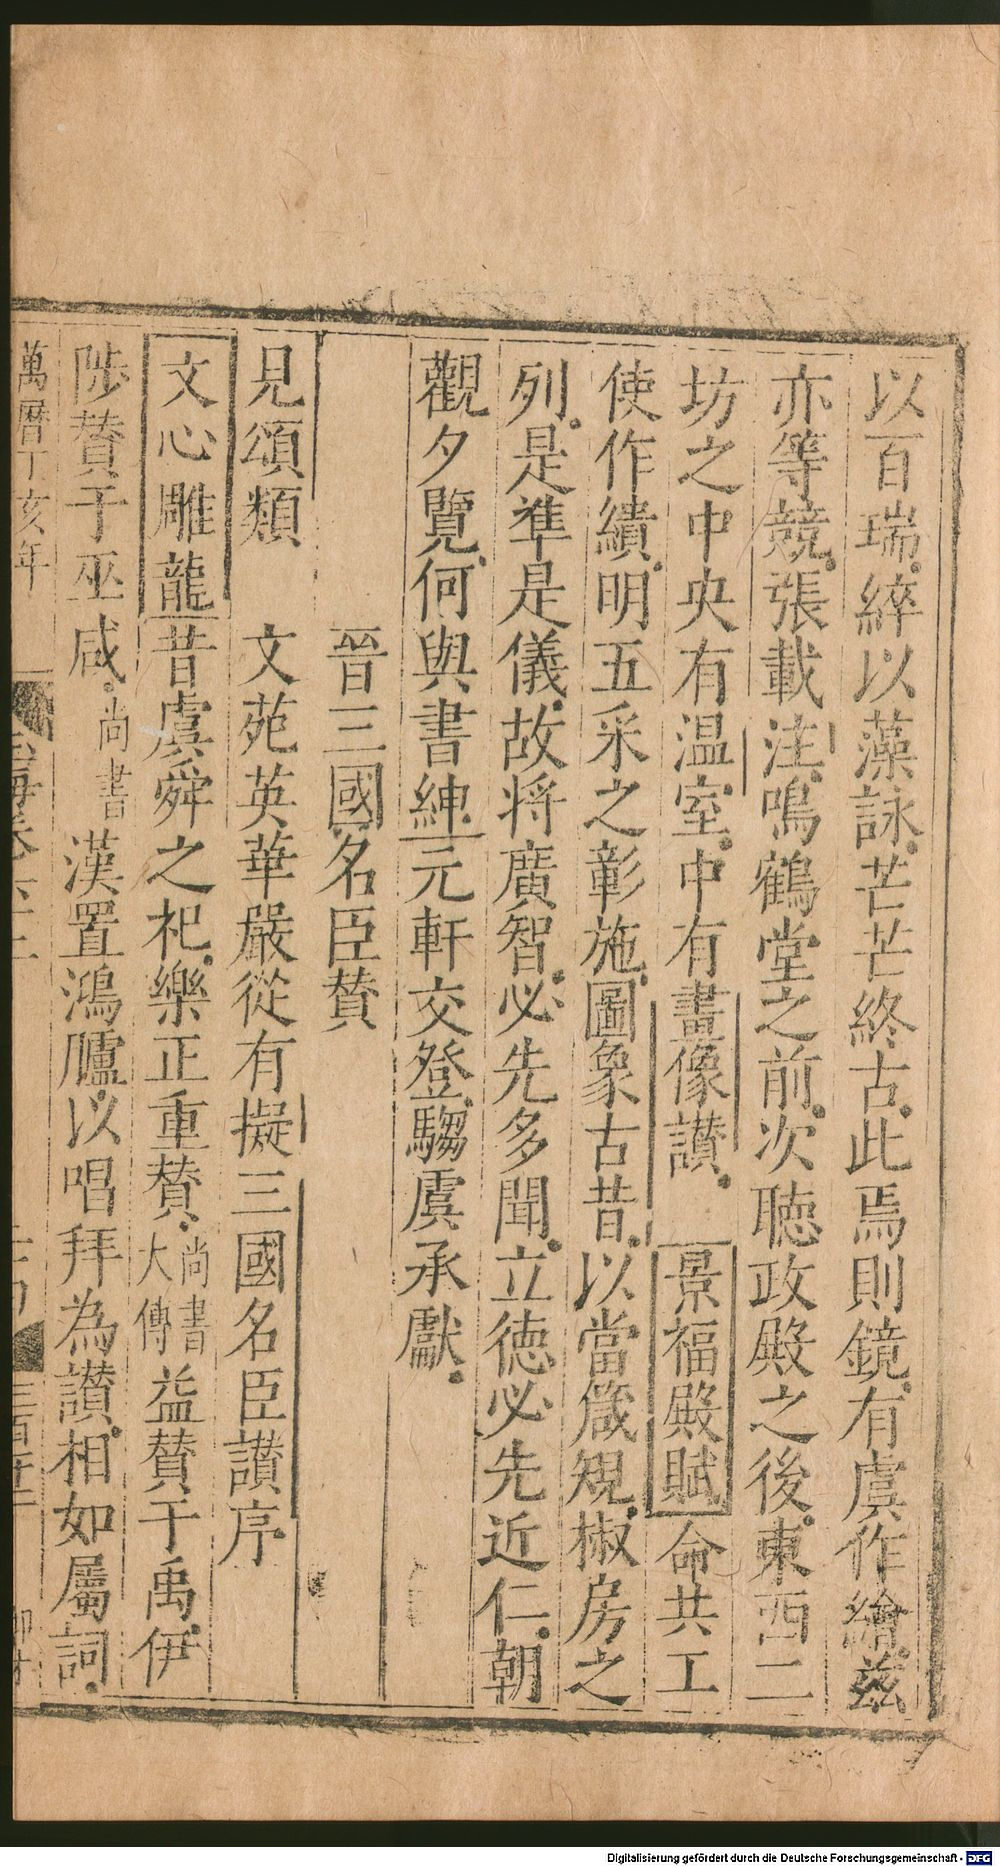 以百瑞綷以藻詠芒芒終古此焉則鏡有虞作繪兹
亦等競張載注鳴鶴堂之前次聴政殿之後東西二
坊之中央有温室中有畫像讃 景福殿賦命共工
使作繢明五采之彰施圖象古昔以當箴規椒房之
列是準是儀故将廣智必先多聞立徳必先近仁朝
觀夕覽何與書紳元軒交登騶虞承獻
晉三國名臣賛
見頌類 文苑英華嚴從有擬三國名臣讃序
文心雕龍昔虞舜之祀樂正重賛尚書大傳益賛于禹伊
陟賛于巫咸尚書漢置鴻臚以唱拜為讃相如屬詞
萬曆丁亥年
Digitalisierung gefördert durch die Deutsche Forschungsgemeinschaft - DFG